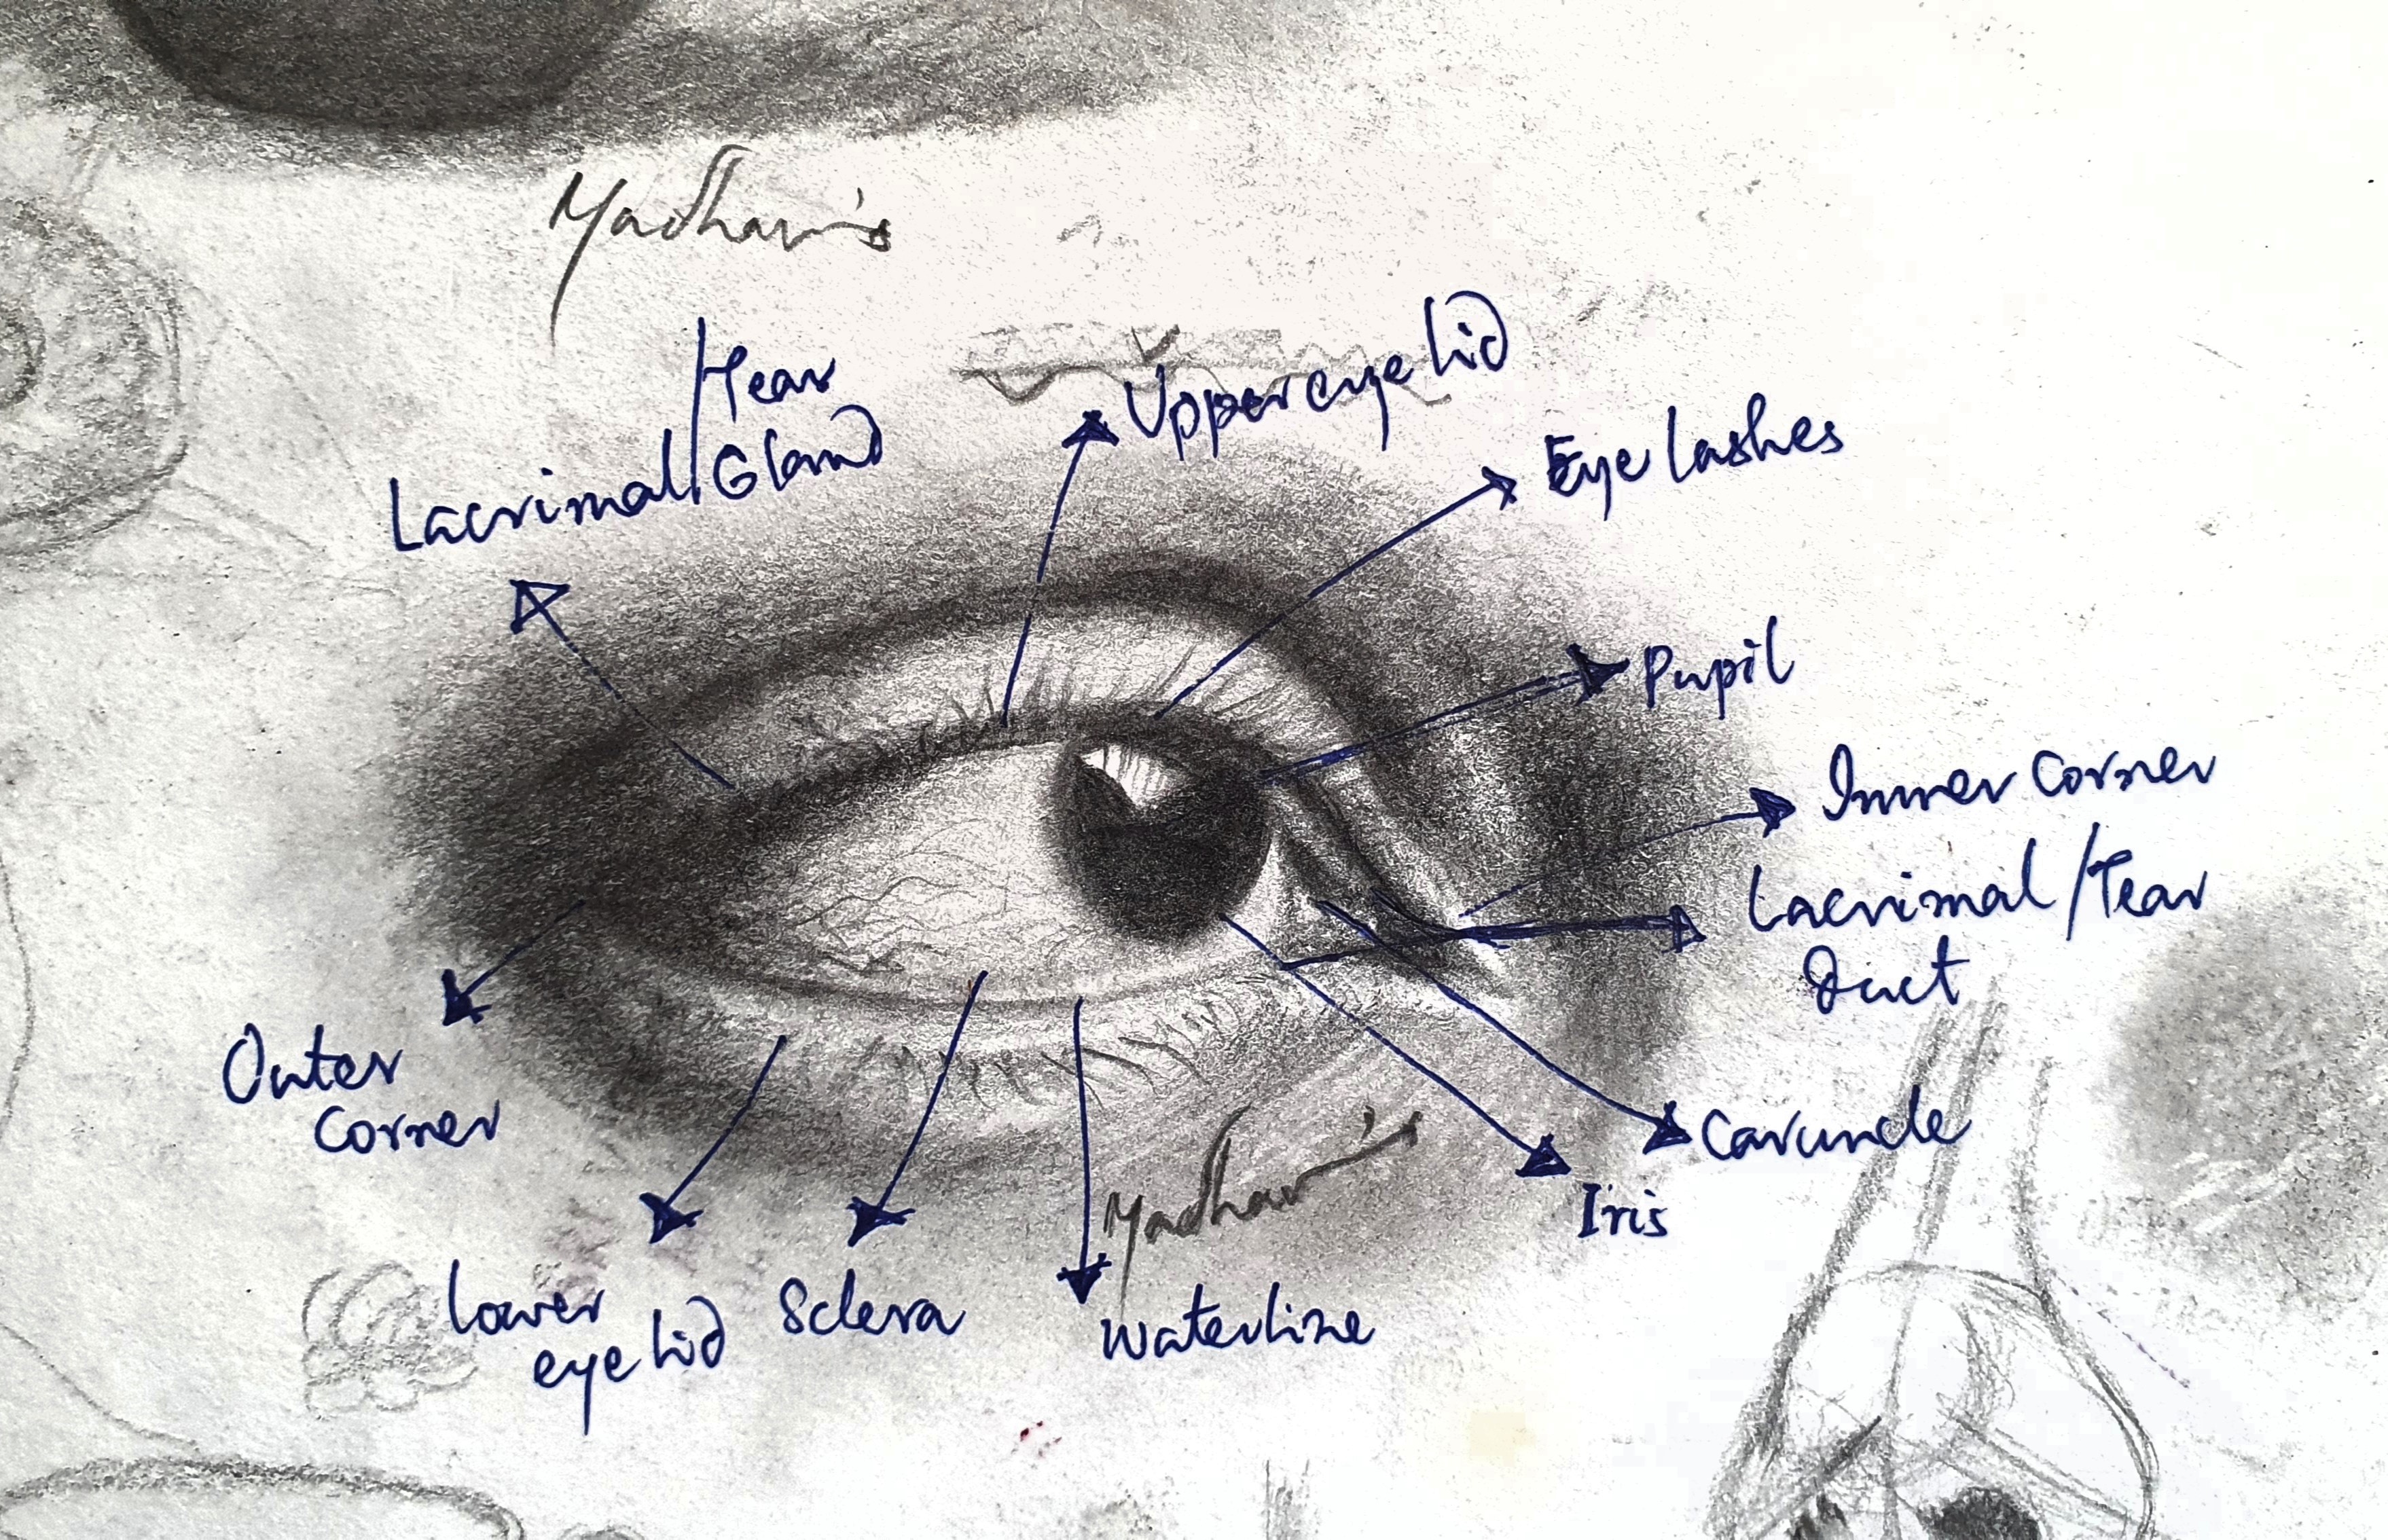 Madhav's
Lacrimal/Tear
Gland
Upper eye lid
Eye lashes
Pupil
Inner corner
Lacrimal/Tear
Duct
Caruncle
Iris
Madhav's
Waterline
Sclera
Lower
eye lid
Outer
Corner